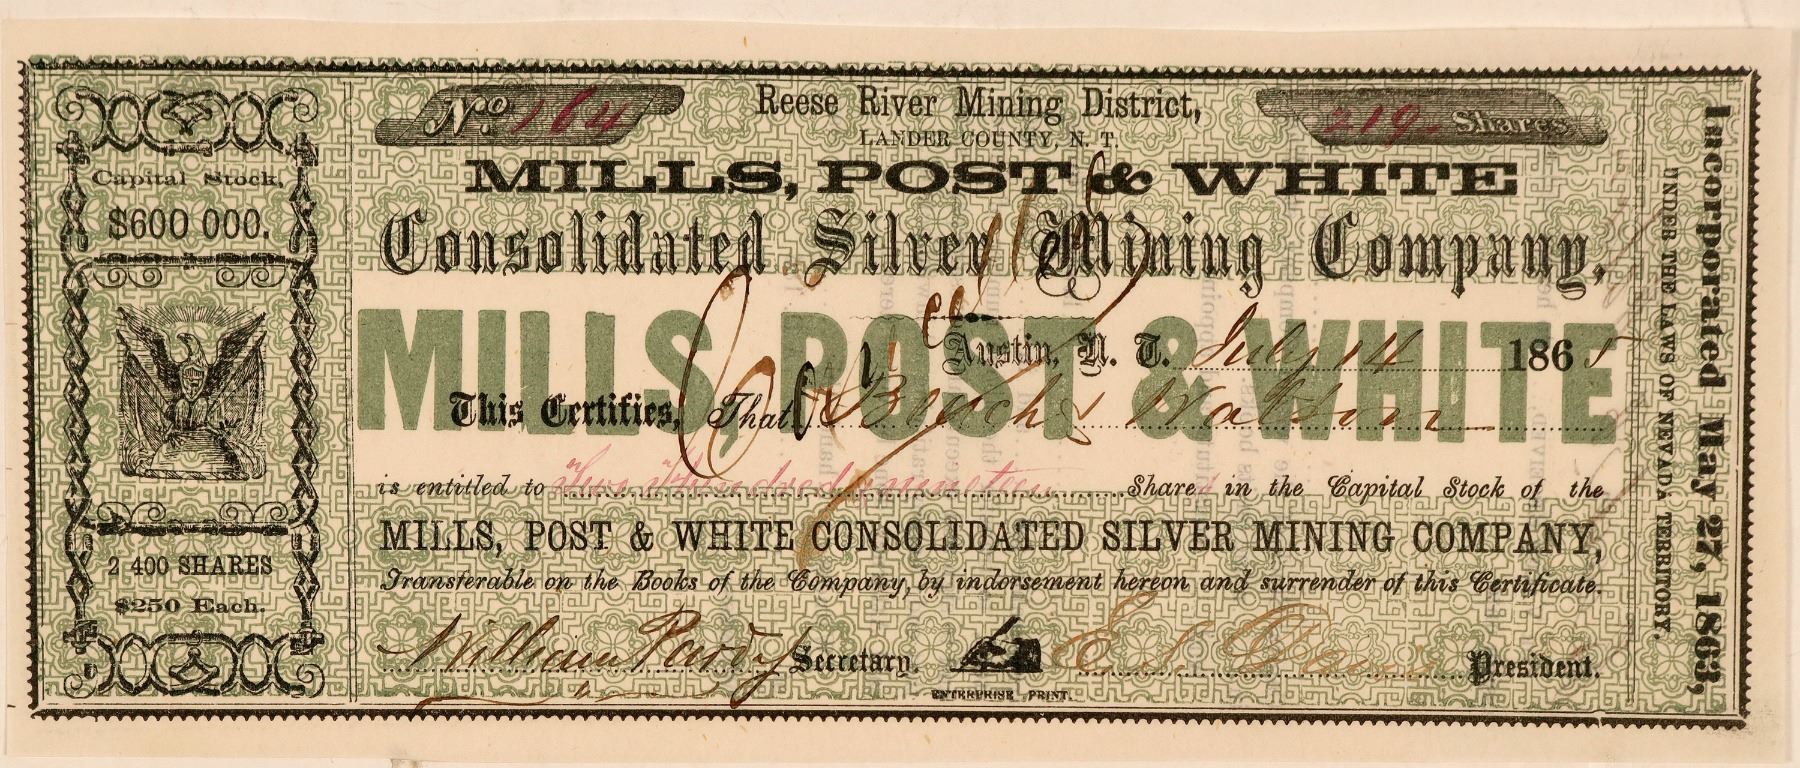 No. 164
Reese River Mining District,
219 Shares
LANDER COUNTY, N. T.
MILLS, POST & WHITE
Consolidated Silver Mining Company,
MILLS, POST & WHITE
Cancelled
Austin, N. T. July 14 1865
This Certifies, That Beach & Watson
is entitled to Two Hundred & nineteen Shares in the Capital Stock of the
MILLS, POST & WHITE CONSOLIDATED SILVER MINING COMPANY,
Transferable on the Books of the Company, by indorsement hereon and surrender of this Certificate.
William Pardy Secretary.
E. S. Davis President.
ENTERPRISE PRINT.
Capital Stock,
$600 000.
2 400 SHARES
$250 Each.
Incorporated May 27, 1863,
UNDER THE LAWS OF NEVADA TERRITORY.